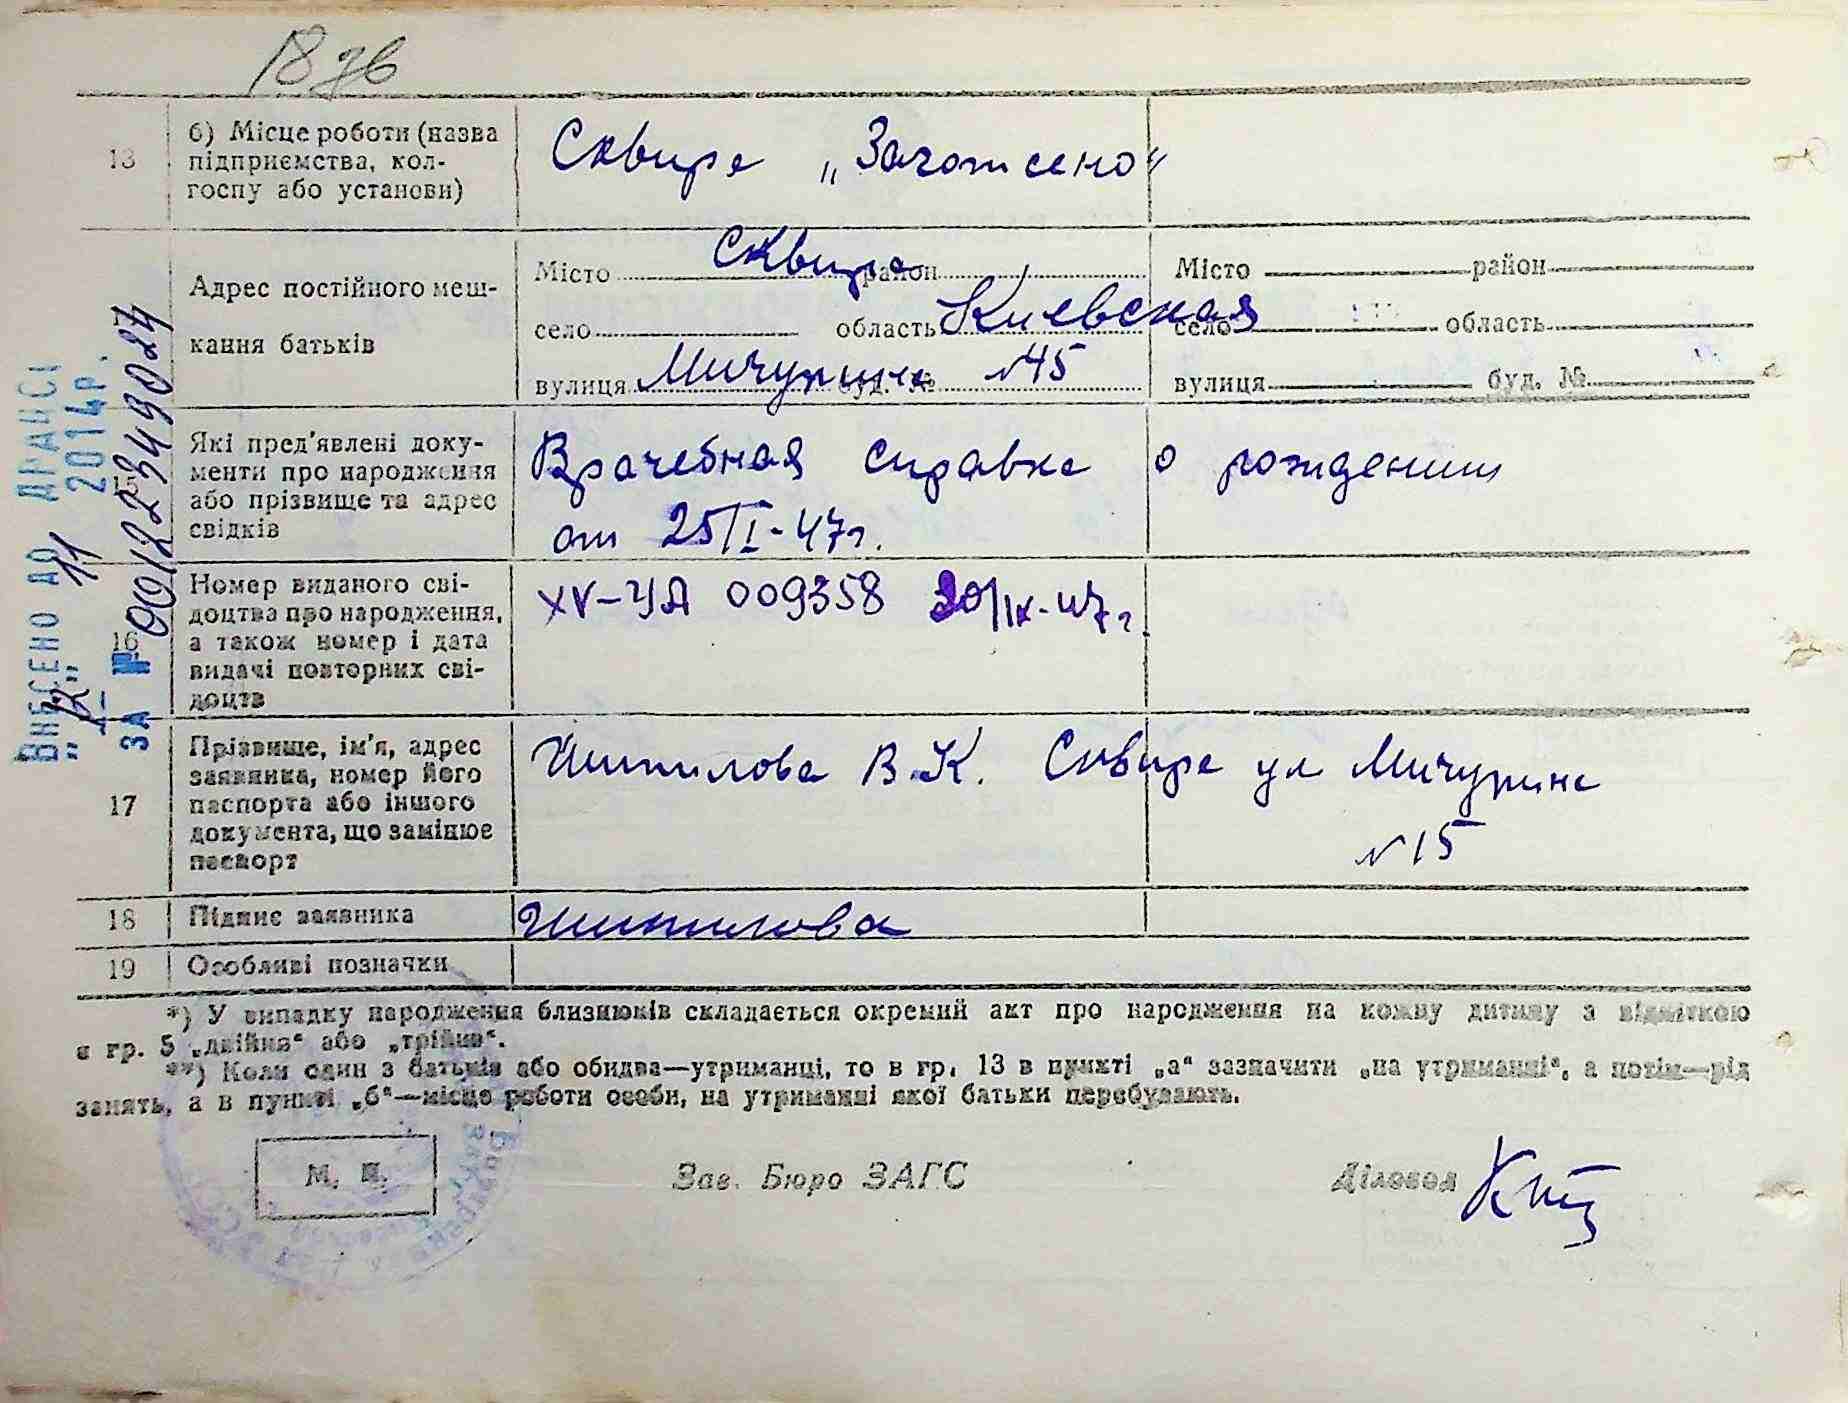 18 зв
13 б) Місце роботи (назва підприємства, колгоспу або установи) Сквира „Заготсено“
Адрес постійного мешкання батьків
Місто Сквира район Місто район
село область Киевская село область
вулиця Мичурина буд. № №45 вулиця буд. №
15 Які пред'явлені документи про народження або прізвище та адрес свідків
Врачебная справка о рождении
от 25/I-47г.
16 Номер виданого свідоцтва про народження, а також номер і дата видачі повторних свідоцтв
XV-УА 009358 20/IX-47г.
17 Прізвище, ім'я, адрес заявника, номер його паспорта або іншого документа, що замінює паспорт
Шипилова В.К. Сквира ул Мичурина
№15
18 Підпис заявника Шипилова
19 Особливі позначки
*) У випадку народження близнюків складається окремий акт про народження на кожну дитину з відміткою
в гр. 5 „двійня“ або „трійня“.
**) Коли один з батьків або обидва—утриманці, то в гр. 13 в пункті „а“ зазначити „на утриманні“, а потім—рід
занять, а в пункті „б“—місце роботи особи, на утриманні якої батьки перебувають.
М. П. Зав. Бюро ЗАГС Діловод
ВНЕСЕНО ДО ДРАЦСГ
„12“ 11 2014р.
ЗА № 00122349024